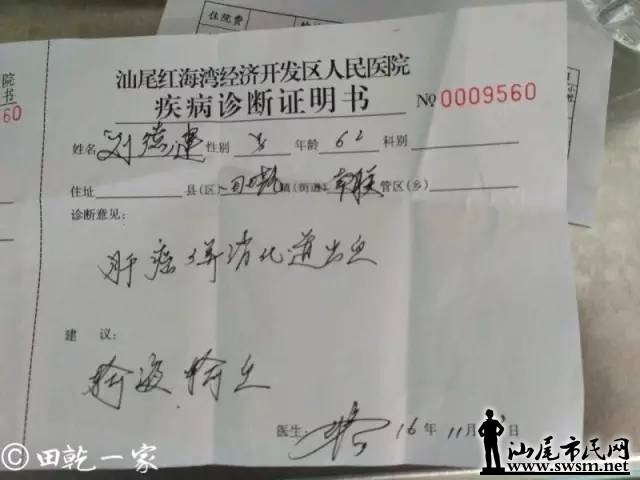 住院费
院
书
60
汕尾红海湾经济开发区人民医院
疾病诊断证明书 No 0009560
姓名 刘德建 性别 男 年龄 62 科别
住址 县(区) 田乾 镇(街道) 南联 管区(乡)
诊断意见:
肝癌 伴消化道出血
建 议:
输液 输血
医生: 16 年 11 月 日
© 田乾一家
汕尾市民网
www.swsm.net